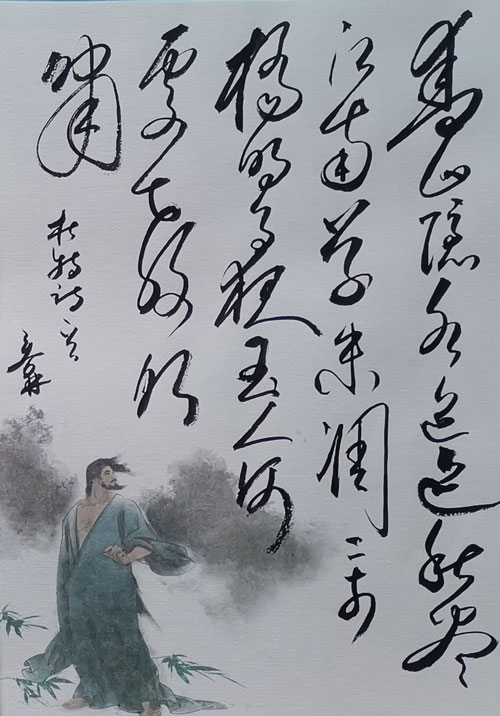 青山隐水迢迢秋尽
江南草未凋二十四
桥明月夜玉人何
处教吹
箫
杜牧诗